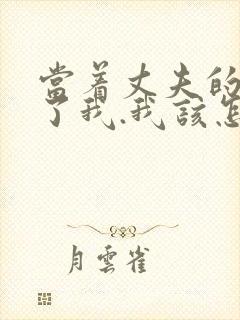 當着丈夫的
了我.我該怎
月雲雀